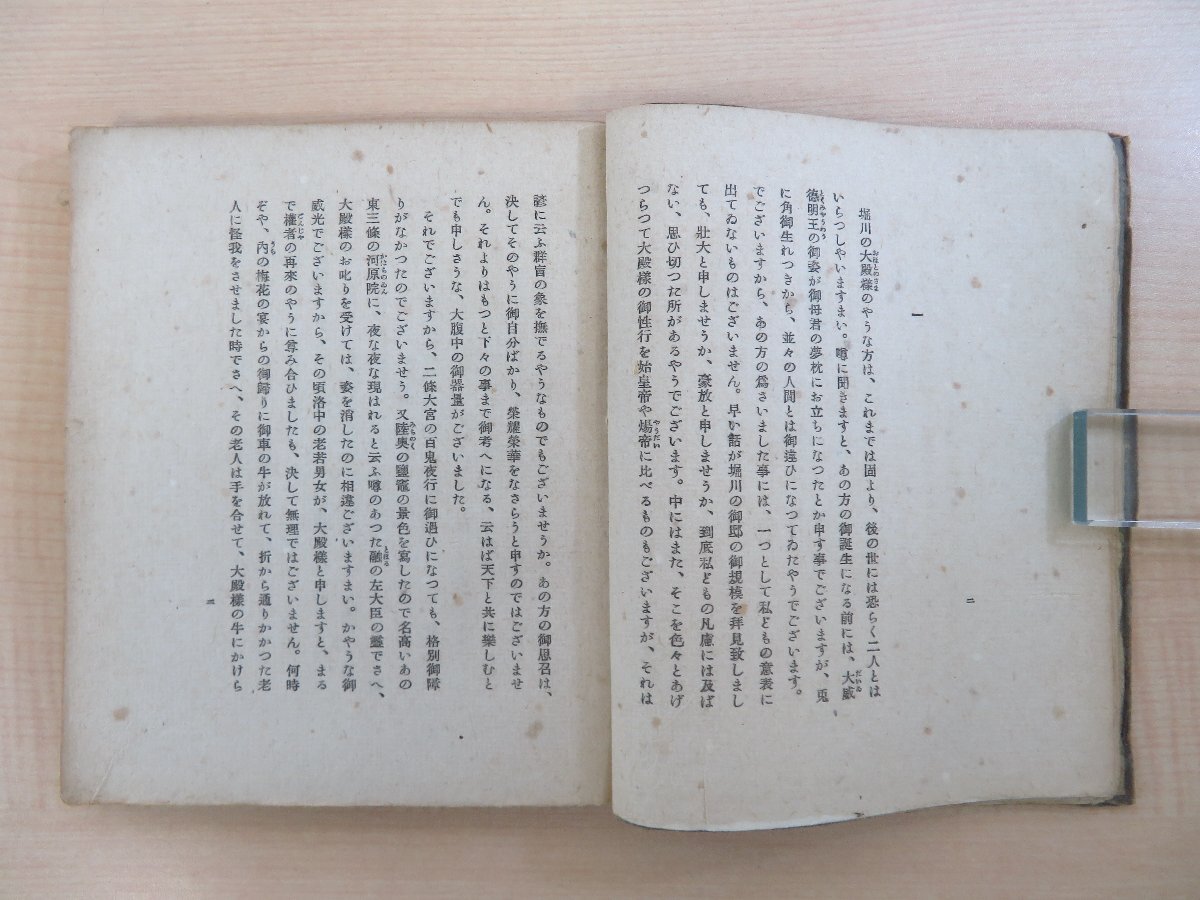 一
堀川の大殿樣のやうな方は、これまでは固より、後の世には恐らく二人とは
いらつしやいますまい。噂に聞きますと、あの方の御誕生になる前には、大威
德明王の御姿が御母君の夢枕にお立ちになつたとか申す事でございますが、兎
に角御生れつきから、並々の人間とは御違ひになつてゐたやうでございます。
でございますから、あの方の爲さいました事には、一つとして私どもの意表に
出てゐないものはございません。早い話が堀川の御邸の御規模を拜見致しまし
ても、壯大と申しませうか、豪放と申しませうか、到底私どもの凡慮には及ば
ない、思ひ切つた所があるやうでございます。中にはまた、そこを色々とあげ
つらつて大殿樣の御性行を始皇帝や煬帝に比べるものもございますが、それは
二
諺に云ふ群盲の象を撫でるやうなものでもございませうか。あの方の御思召は、
決してそのやうに御自分ばかり、榮耀榮華をなさらうと申すのではございませ
ん。それよりはもつと下々の事まで御考へになる、云はば天下と共に樂しむと
でも申しさうな、大腹中の御器量がございました。
それでございますから、二條大宮の百鬼夜行に御遇ひになつても、格別御障
りがなかつたのでございませう。又陸奥の鹽竈の景色を寫したので名高いあの
東三條の河原院に、夜な夜な現はれると云ふ噂のあつた融の左大臣の靈でさへ、
大殿樣のお叱りを受けては、姿を消したのに相違ございますまい。かやうな御
威光でございますから、その頃洛中の老若男女が、大殿樣と申しますと、まる
で權者の再來のやうに尊み合ひましたも、決して無理ではございません。何時
ぞや、内の梅花の宴からの御歸りに御車の牛が放れて、折から通りかかつた老
人に怪我をさせました時でさへ、その老人は手を合せて、大殿樣の牛にかけら
三